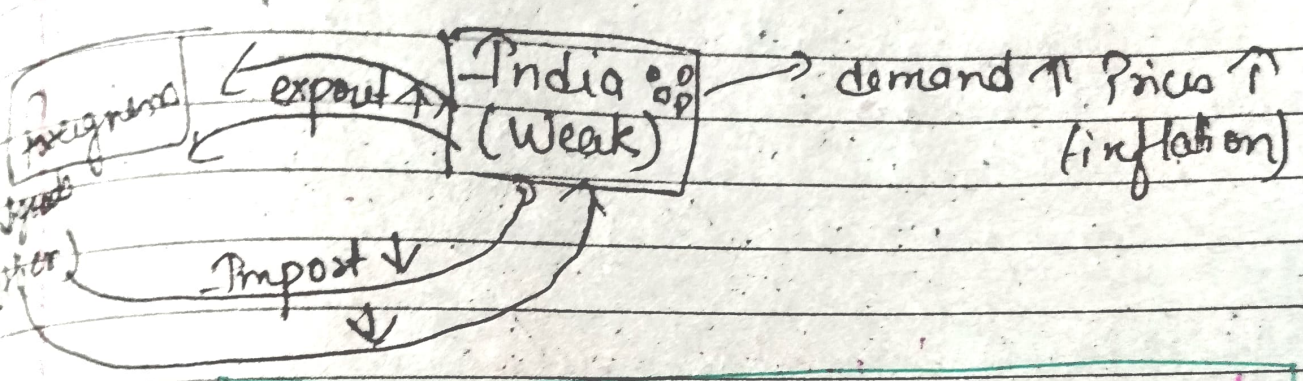 export ↑
India
(Weak)
demand ↑ Prices ↑
(inflation)
Import ↓
↓